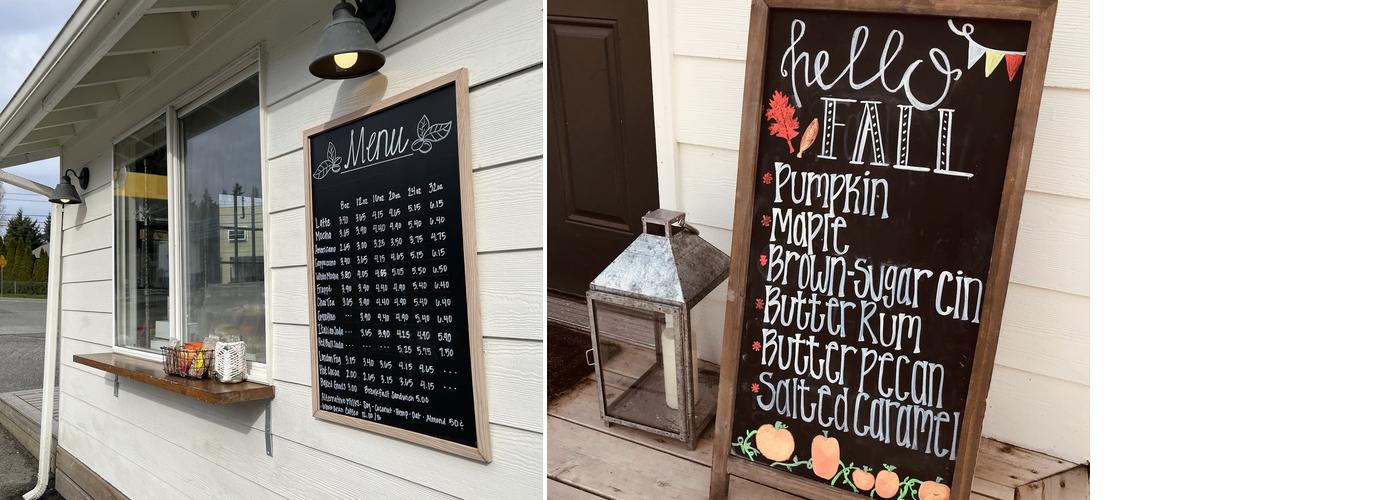 Menu
8oz 12oz 16oz 20oz 24oz 32oz
Latte 3.40 3.65 4.15 4.65 5.15 6.15
Mocha 3.65 3.90 4.40 4.90 5.40 6.40
Americano 2.65 3.00 3.25 3.50 3.75 4.75
Cappuccino 3.40 3.65 4.15 4.65 5.15 6.15
White Mocha 3.80 4.05 4.55 5.05 5.50 6.50
Frappé 3.90 4.40 4.90 5.40 6.40
Chai Tea 3.65 3.90 4.40 4.90 5.40 6.40
3.90 4.40 4.90 5.40 6.40
Italian Soda 3.65 3.90 4.25 4.90 5.40
Red Bull Soda 5.25 5.75 7.50
London Fog 3.15 3.40 3.65 4.15 4.65
Hot Cocoa 2.00 2.65 3.15 3.65 4.15
Baked Goods 3.00 Breakfast Sandwich 5.00
Alternative Milks: Soy - Coconut - Hemp - Oat - Almond 50¢
Whole Bean Coffee 12.00 / lb
hello
FALL
Pumpkin
Maple
Brown-Sugar Cin
Butter Rum
Butter pecan
Salted Caramel